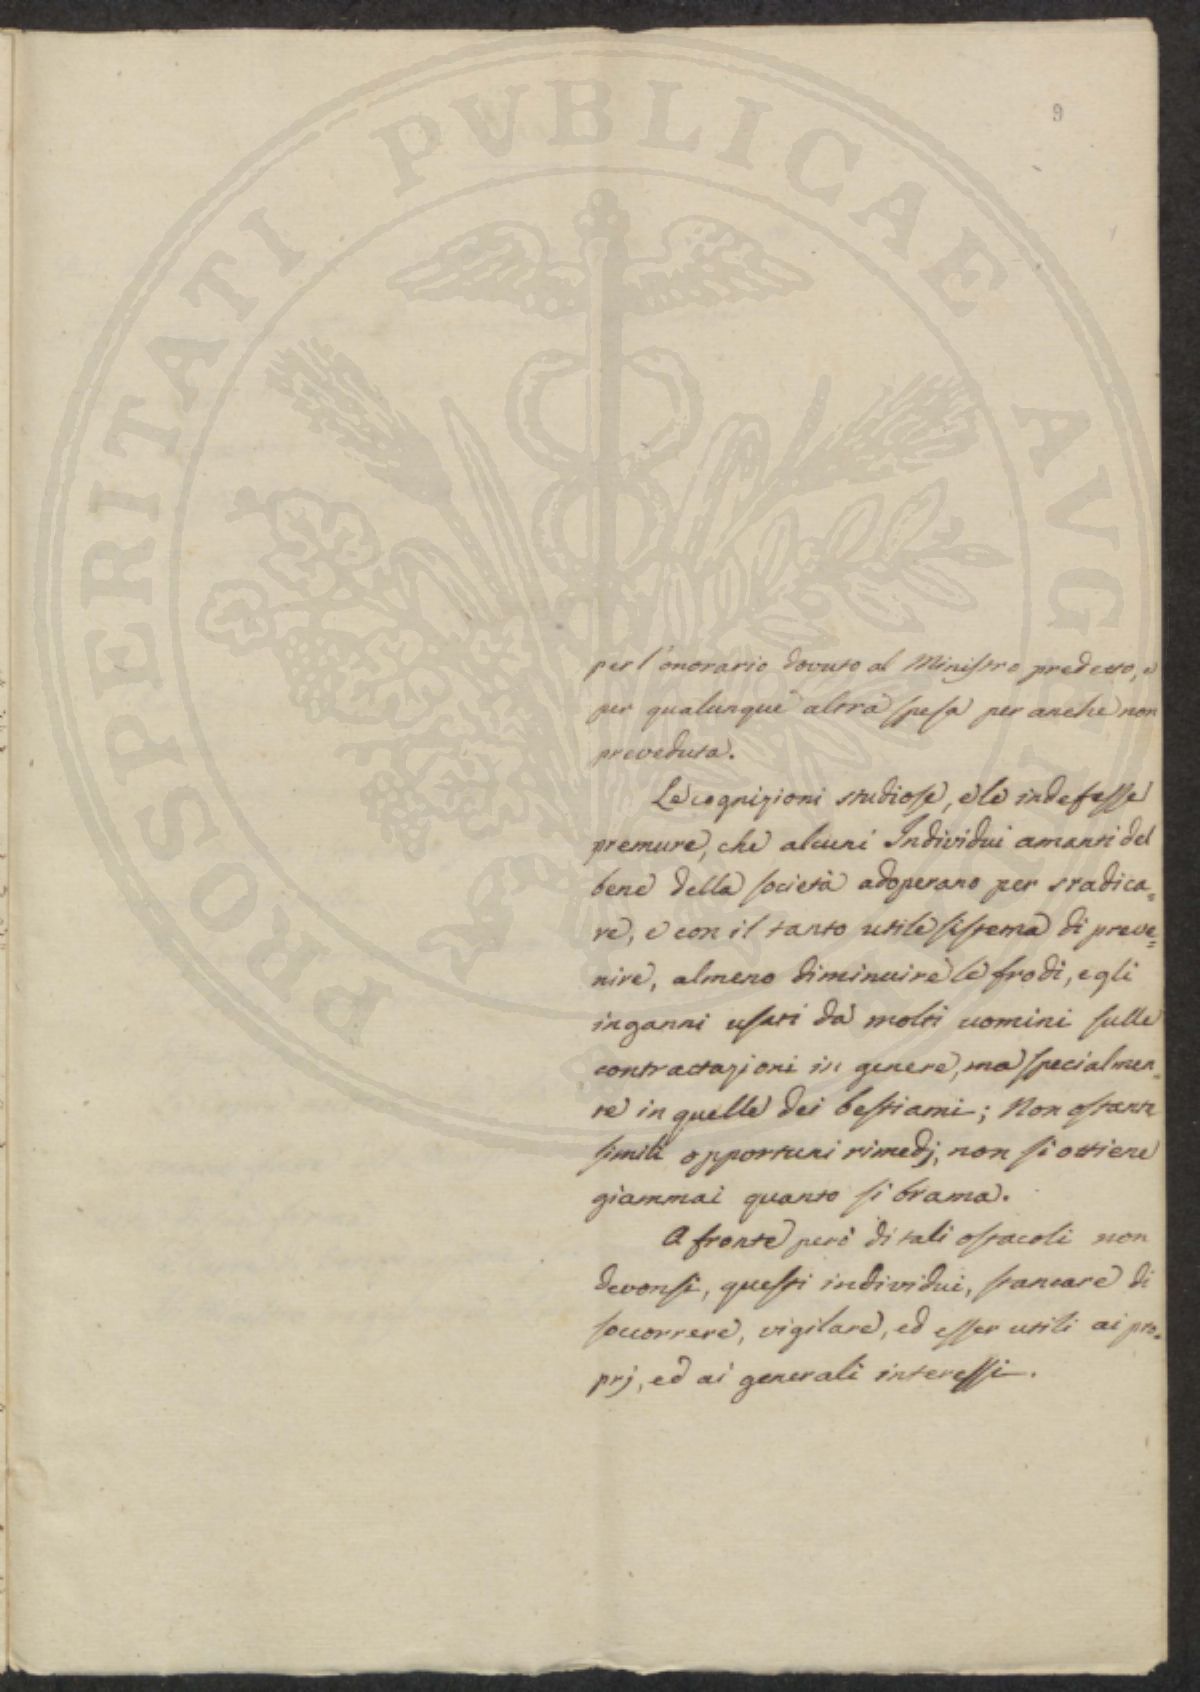 9
PROSPERITATI PVBLICAE AVG
per l'onorario dovuto al Ministro predetto, e
per qualunque altra spesa per anche non
preveduta.
Le cognizioni studiose, e le indefesse
premure, che alcuni Individui amanti del
bene della società adoperano per sradica=
re, e con il tanto utile sistema di preve=
nire, almeno diminuire le frodi, e gli
inganni usati da molti uomini sulle
contrattazioni in genere, ma specialmen=
te in quelle dei bestiami; Non ostante
simili opportuni rimedj, non si ottiene
giammai quanto si brama.
A fronte però di tali ostacoli non
devonsi, questi individui, stancare di
soccorrere, vigilare, ed esser utili ai pro=
prj, ed ai generali interessi.